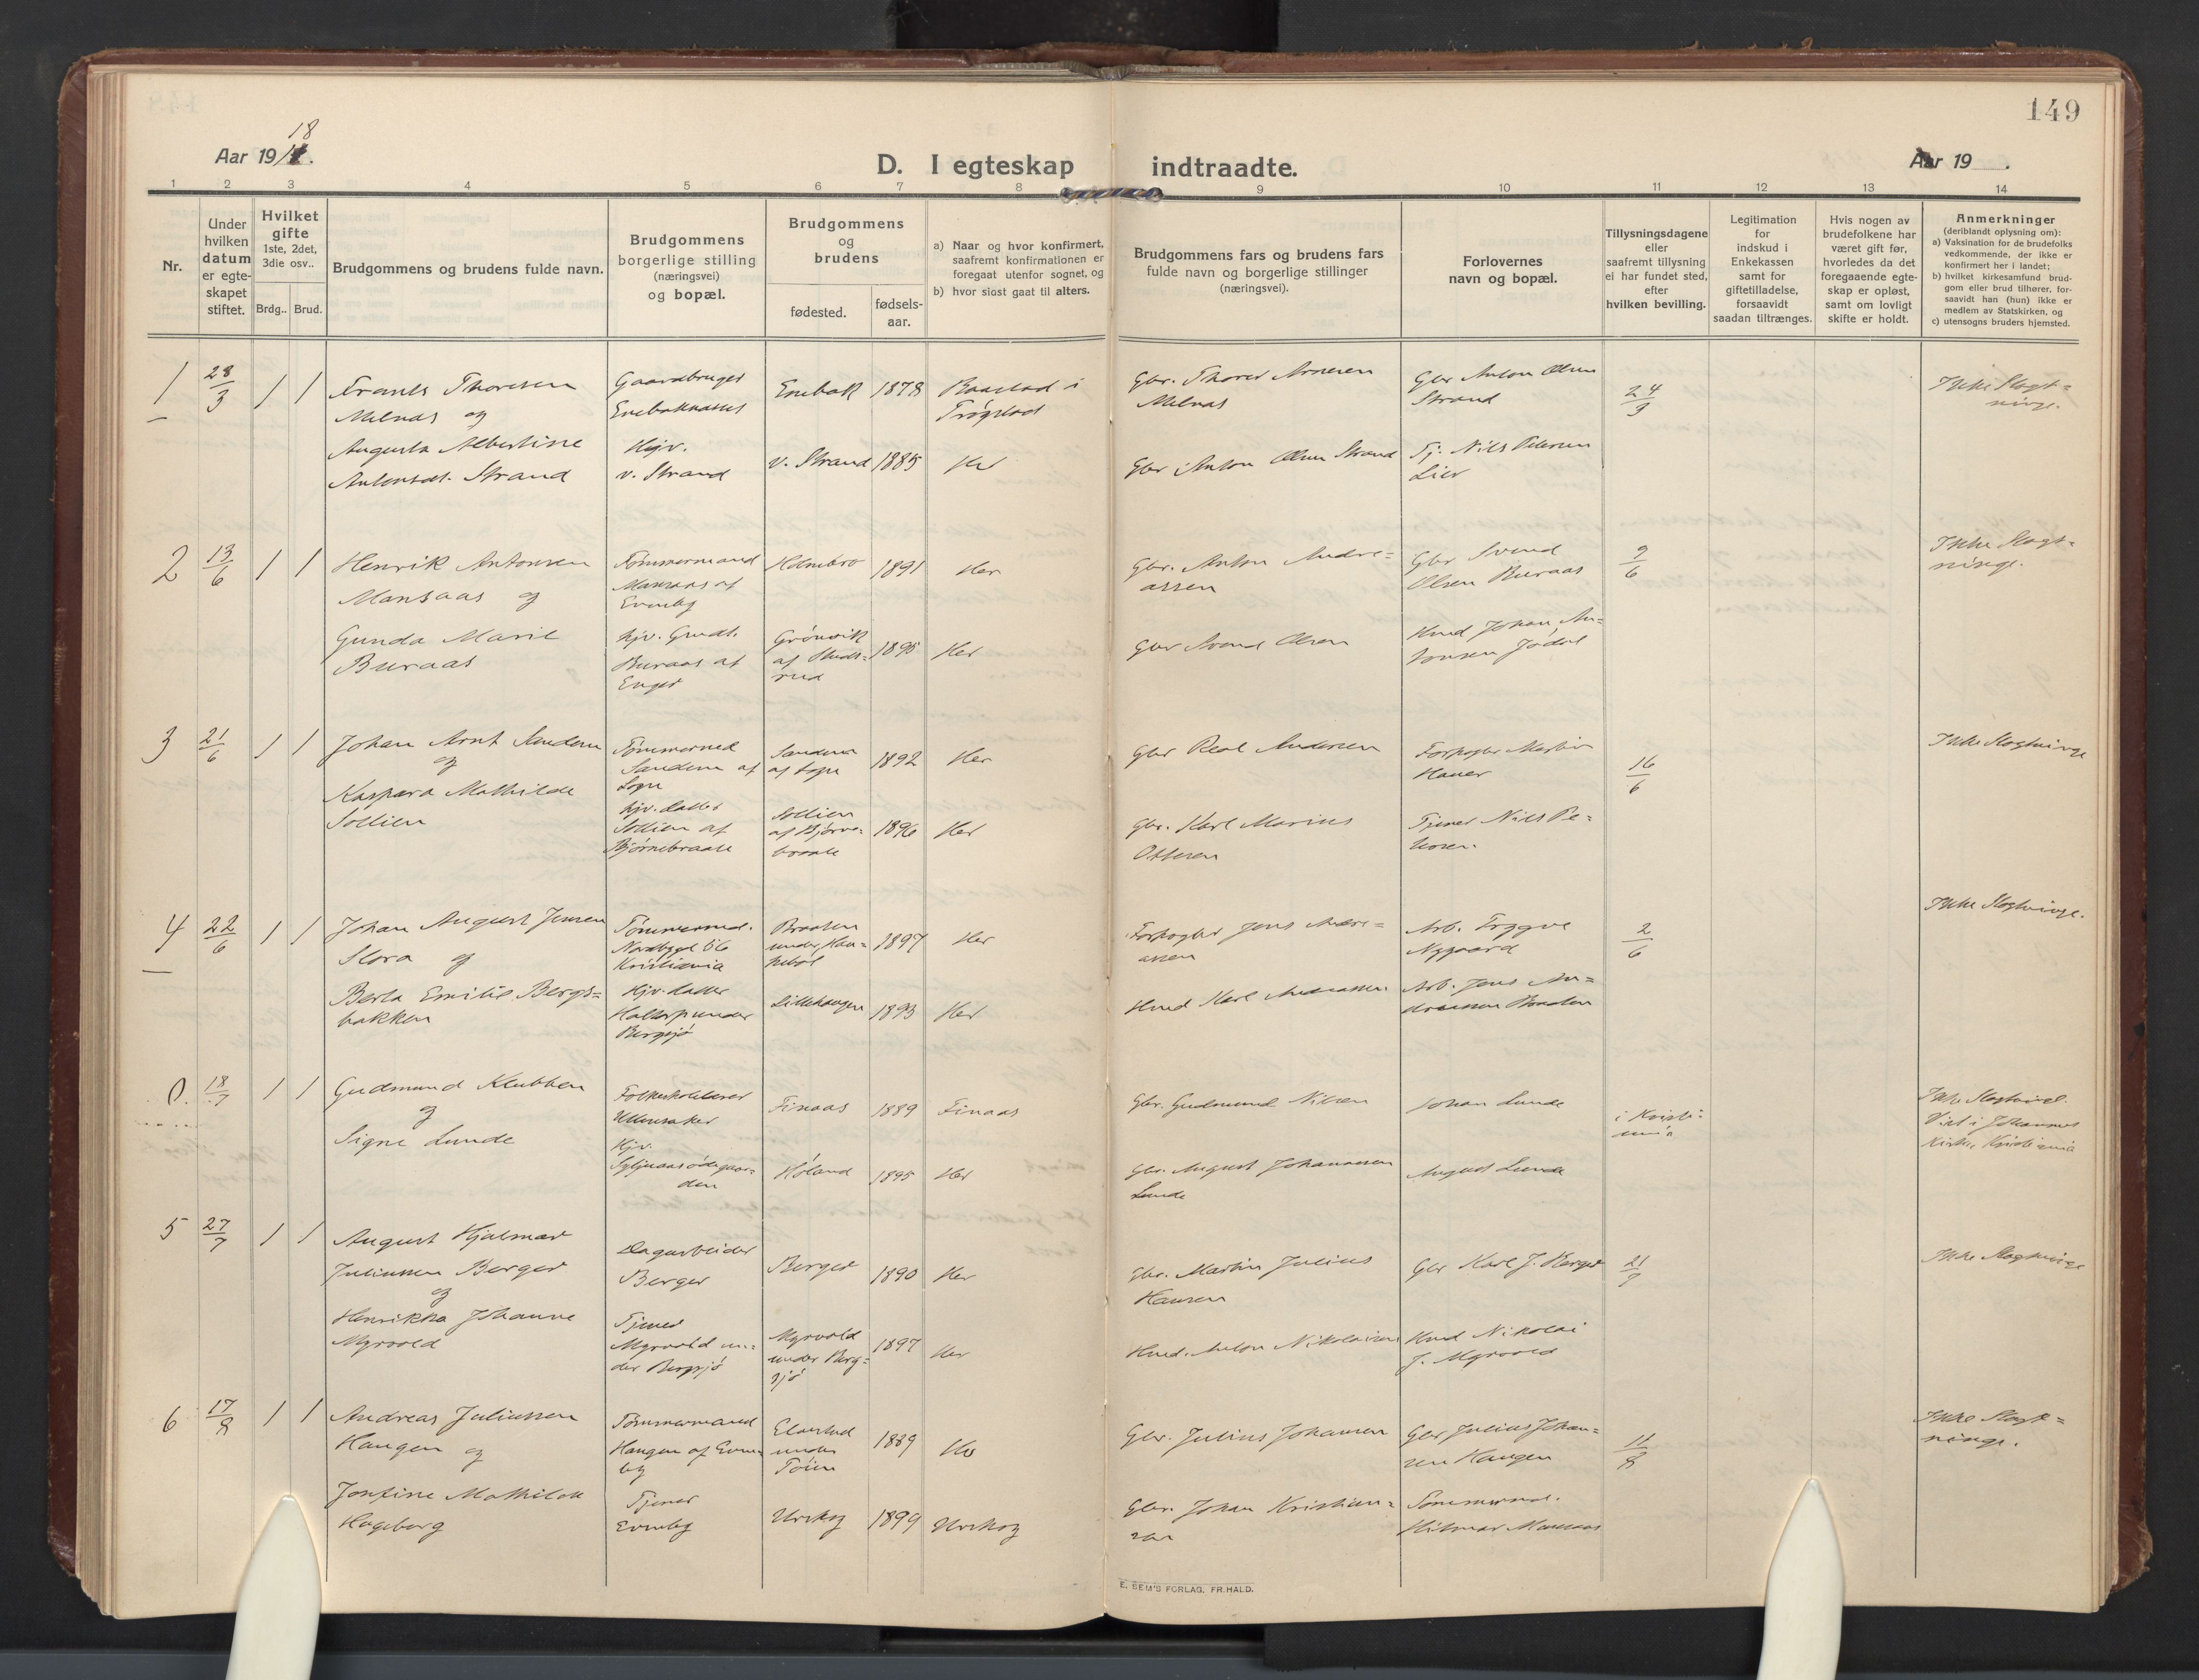 149
18
Aar 19
D. I egteskap indtraadte.
Aar 19
1 2 3 4 5 6 7 8 9 10 11 12 13 14
Nr.
Under
hvilken
datum
er egte-
skapet
stiftet.
Hvilket
gifte
1ste, 2det,
3die osv..
Brdg.. Brud.
Brudgommens og brudens fulde navn.
Brudgommens
borgerlige stilling
(næringsvei)
og bopæl.
Brudgommens
og
brudens
fødested.
fødsels-
aar.
a) Naar og hvor konfirmert,
saafremt konfirmationen er
foregaat utenfor sognet, og
b) hvor sidst gaat til alters.
Brudgommens fars og brudens fars
fulde navn og borgerlige stillinger
(næringsvei).
Forlovernes
navn og bopæl.
Tillysningsdagene
eller
saafremt tillysning
ei har fundet sted,
efter
hvilken bevilling.
Legitimation
for
indskud i
Enkekassen
samt for
giftetilladelse,
forsaavidt
saadan tiltrænges.
Hvis nogen av
brudefolkene har
været gift før,
hvorledes da det
foregaaende egte-
skap er opløst,
samt om lovligt
skifte er holdt.
Anmerkninger
(deriblandt oplysning om):
a) Vaksination for de brudefolks
vedkommende, der ikke er
konfirmert her i landet;
b) hvilket kirkesamfund brud-
gom eller brud tilhører, for-
saavidt han (hun) ikke er
medlem av Statskirken, og
c) utensogns bruders hjemsted.
1
28/3
1 1
Frants Thoresen
Melnas og
Augusta Albertine
Antonsdt. Strand
Gaardbruger
Enebaknesset
Hjv.
v. Strand
Enebak 1878
v. Strand 1885
Baastad i
Trøgstad
Her
Gbr. Thores Arnesen
Melnas
Gbr Anton Olsen Strand
Gbr Anton Olsen
Strand
Tj. Nils Petersen
Lier
24/3
Ikke Slegt-
ninge.
2
13/6
1 1
Henrik Antonsen
Mansaas og
Gunda Marie
Buraas
Tømmermand
Mansaas af
Evenby
hjv. Gaudt.
Buraas af
Enger
Holmebro 1891
Grønvik
af Studs-
rud
1895
Her
Her
Gbr. Anton Andre-
assen
Gbr Svend Olsen
Gbr Svend
Olsen Buraas
Hmd Johan An-
tonsen Jødal
9/6
Ikke Slegt-
ninge.
3
21/6
1 1
Johan Arnt Sandem
og
Kaspara Mathilde
Sollien
Tømmermd
Sandem af
Sogn
hjv. datter
Sollien af
Bjørnebraate
Sandem
af Sogn
1892
Sollien
af Bjørne-
braate
1896
Her
Her
Gbr Peal Andersen
Gbr. Karl Marius
Ottesen
Forpagter Martin
Hauer
Tjener Nils Pe-
tersen.
16/6
Ikke Slegtninge
4
22/6
1 1
Johan August Jensen
Slora og
Berta Emilie Bergs-
bakken
Tømmermd.
Nordbygd 66
Kristiania
Hjv. datter
under
Bergsjø
Braaten
under
1897
Lillehaugen 1893
Her
Her
Forpagter Jens Andre-
assen
Hmd Karl Andreassen
Arb. Trygve
Nygaard
Arb. Jens An-
dreassen Braaten
2/6
Ikke Slegtninge.
0.
18/7
1 1
Gudmund Klubben
og
Signe Lunde
Folkeskolelærer
Ullensaker
Hjv.
Finaas 1889
Høland 1895
Finaas
Her
Gbr. Gudmund Nilsen
Gbr. August Johannesen
Lunde
Johan Lunde
August Lunde
i Kristi-
ania
Ikke Slegtninge.
Viet i Johannes
Kirke, Kristiania
5
27/7
1 1
August Hjalmar
Juliussen Berger
og
Henrikka Johanne
Myrvold
Dagarbeider
Berger
Tjener
Myrvold un-
der Bergsjø
Berger 1890
Myrvold
under Berg-
sjø
1897
Her
Her
Gbr. Martin Julius
Hansen
Hmd. Anton Nikolaisen
Gbr Karl J. Berger
Hmd Nikolai
J. Myrvold
21/7
Ikke Slegtninge
6
17/8
1 1
Andreas Juliussen
Haugen og
Jonfine Mathilde
Hageborg
Tømmermand
Haugen af Even-
by
Tjener
Evenby
Elvestad
under
Tøien
1889
Urskog 1899
Her
Urskog
Gbr. Julius Johansen
Gbr. Johan Kristian-
sen
Gbr Julius Johan-
sen Haugen
Tømmermd.
Hilmar Mansaas
11/8
Ikke Slegt-
ninge.
E. SEM'S FORLAG, FR.HALD.